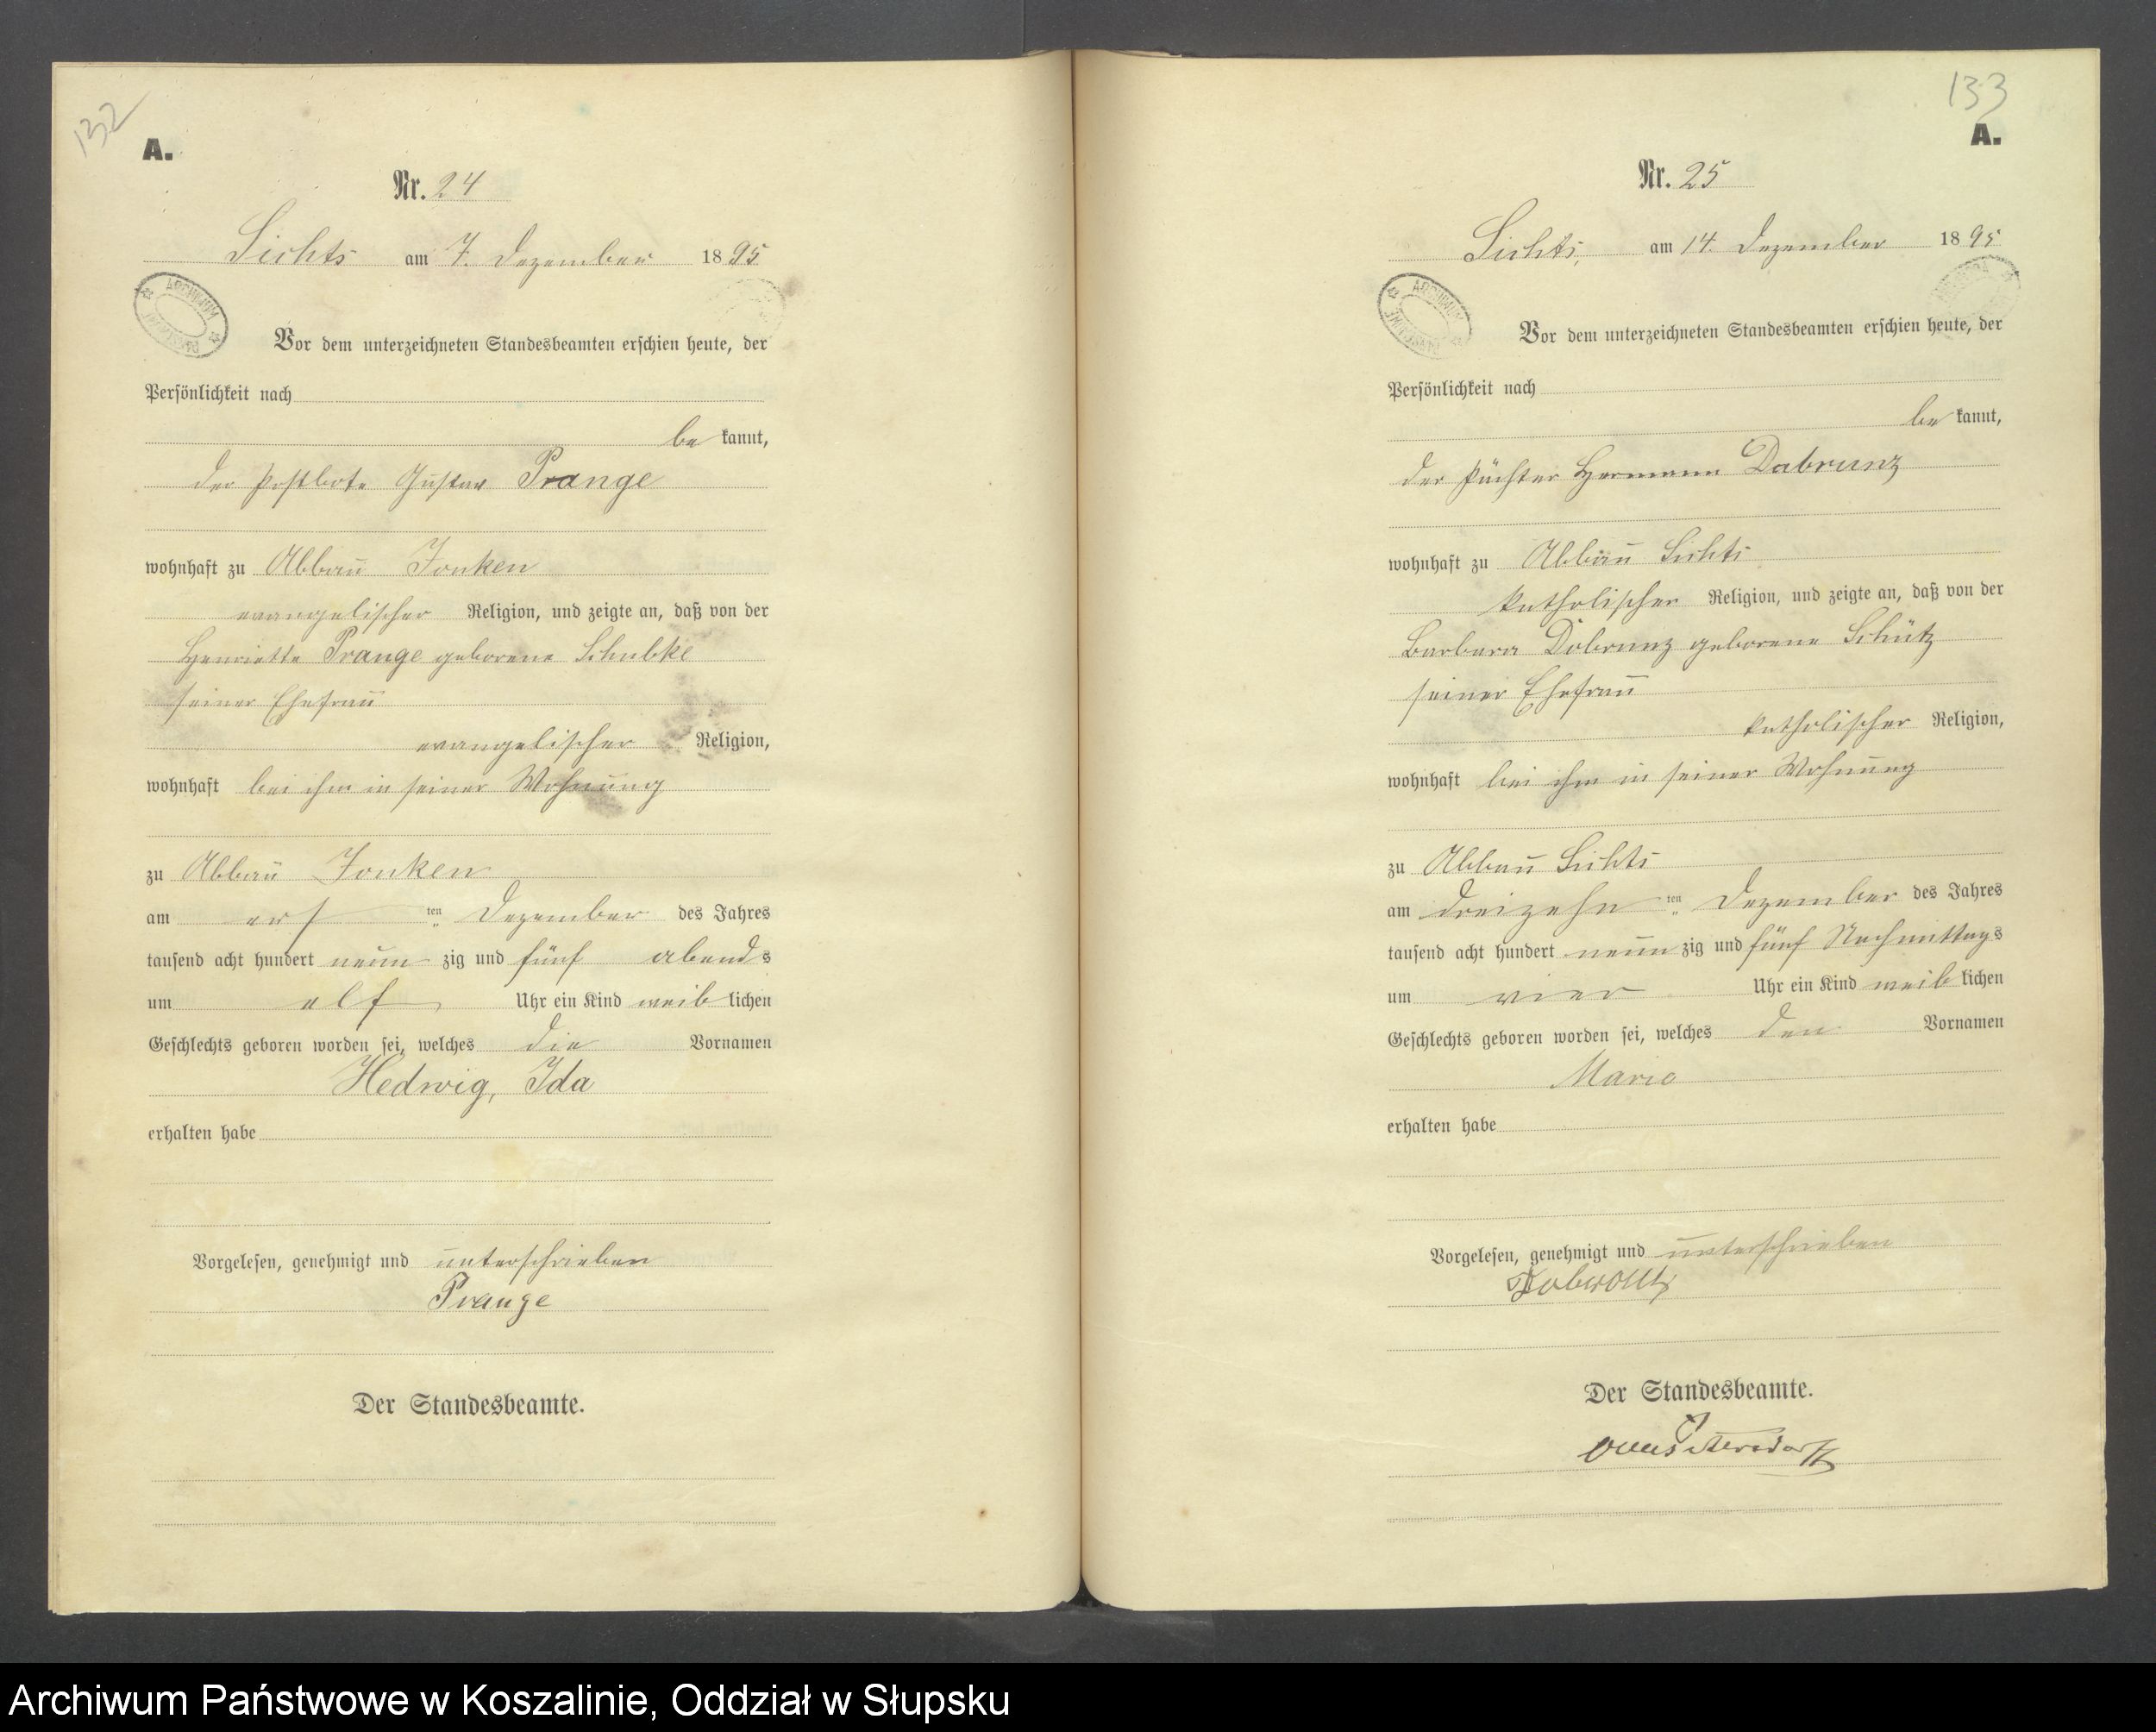 132
A.
Nr. 24
Lichts am 7. Dezember 1895
ARCHIWUM
Vor dem unterzeichneten Standesbeamten erschien heute, der
Persönlichkeit nach
be kannt,
der Postbote Gustav Prange
wohnhaft zu Abbau Jonken
evangelischer Religion, und zeigte an, daß von der
Henriette Prange geborene Schubke
seiner Ehefrau
evangelischer Religion,
wohnhaft bei ihm in seiner Wohnung
zu Abbau Jonken
am erſ ten Dezember des Jahres
tausend acht hundert neun zig und fünf abends
um elf Uhr ein Kind weib lichen
Geschlechts geboren worden sei, welches die Vornamen
Hedwig, Ida
erhalten habe
Vorgelesen, genehmigt und unterschrieben
Prange
Der Standesbeamte.
133
A.
Nr. 25
Lichts, am 14. Dezember 1895
ARCHIWUM
Vor dem unterzeichneten Standesbeamten erschien heute, der
Persönlichkeit nach
be kannt,
der Pächter Hermann Dabrunz
wohnhaft zu Abbau Lichts
katholischer Religion, und zeigte an, daß von der
Barbara Dobrunz geborene Schütz
seiner Ehefrau
katholischer Religion,
wohnhaft bei ihm in seiner Wohnung
zu Abbau Lichts
am dreizehn ten Dezember des Jahres
tausend acht hundert neun zig und fünf Nachmittags
um vier Uhr ein Kind weib lichen
Geschlechts geboren worden sei, welches den Vornamen
Marie
erhalten habe
Vorgelesen, genehmigt und unterschrieben
Der Standesbeamte.
Archiwum Państwowe w Koszalinie, Oddział w Słupsku